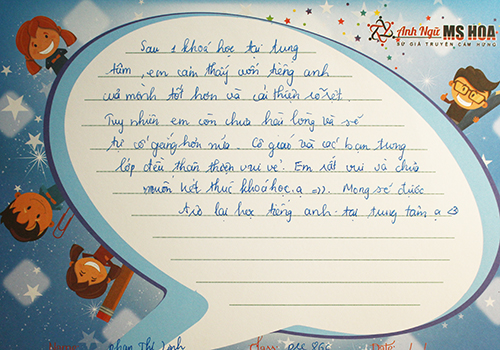 Anh Ngữ MS HOA
SỨ GIẢ TRUYỀN CẢM HỨNG
Sau 1 khoá học tại trung
tâm, em cảm thấy vốn tiếng anh
của mình tốt hơn và cải thiện rõ rệt.
Tuy nhiên em còn chưa hài lòng và sẽ
tự cố gắng hơn nữa. Cô giáo và các bạn trong
lớp đều thân thiện vui vẻ. Em rất vui và chưa
muốn kết thúc khoá học ạ =)). Mong sẽ được
trở lại học tiếng anh tại trung tâm ạ <3
Name: Phan Thị
Class: pre
Date: